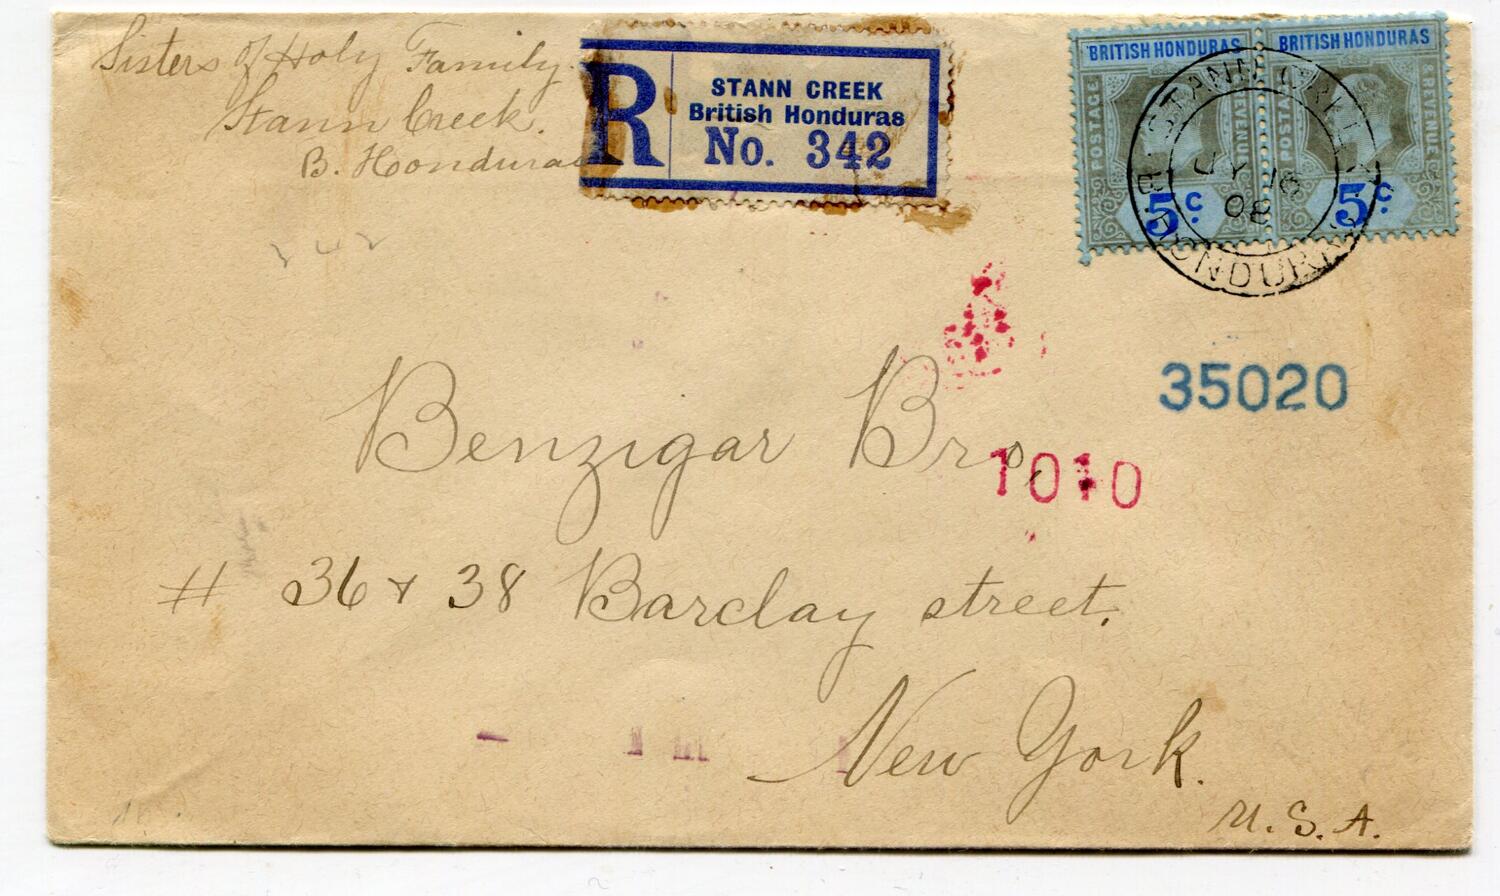 Sisters of Holy Family.
Stann Creek.
B. Honduras
R
STANN CREEK
British Honduras
No. 342
BRITISH HONDURAS
POSTAGE
REVENUE
5c.
BRITISH HONDURAS
POSTAGE
REVENUE
5c.
STANN CREEK
JY 16
08
B. HONDURAS
342
35020
Benzigar Bros,
1010
# 36 & 38 Barclay street.
New York.
U.S.A.